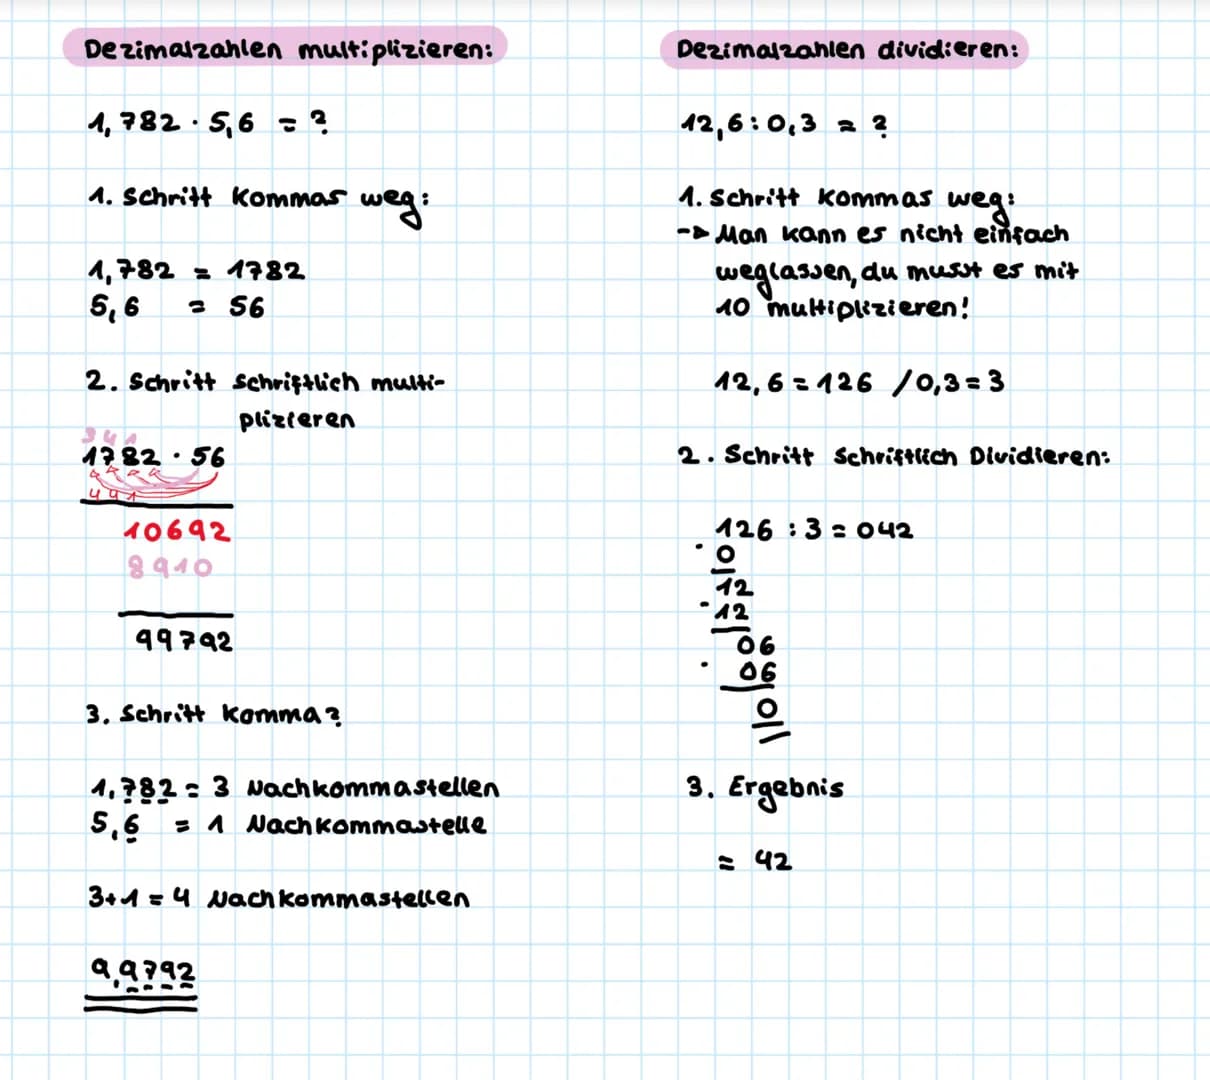 Dezimalzahlen multiplizieren:
1,782 · 5,6 = ?
1. Schritt Kommas weg:
1,782 = 1782
5,6 = 56
2. Schritt schriftlich multi-
plizieren
3 4 1
1782 · 56
4 4 1
10692
8910
99792
3. Schritt Komma?
1,782 = 3 Nachkommastellen
5,6 = 1 Nachkommastelle
3+1 = 4 Nachkommastellen
9,9792
Dezimalzahlen dividieren:
12,6 : 0,3 = ?
1. Schritt Kommas weg:
-> Man kann es nicht einfach
weglassen, du musst es mit
10 multiplizieren!
12,6 = 126 / 0,3 = 3
2. Schritt Schriftlich Dividieren:
126 : 3 = 042
- 0
12
- 12
06
- 06
0
3. Ergebnis
= 42